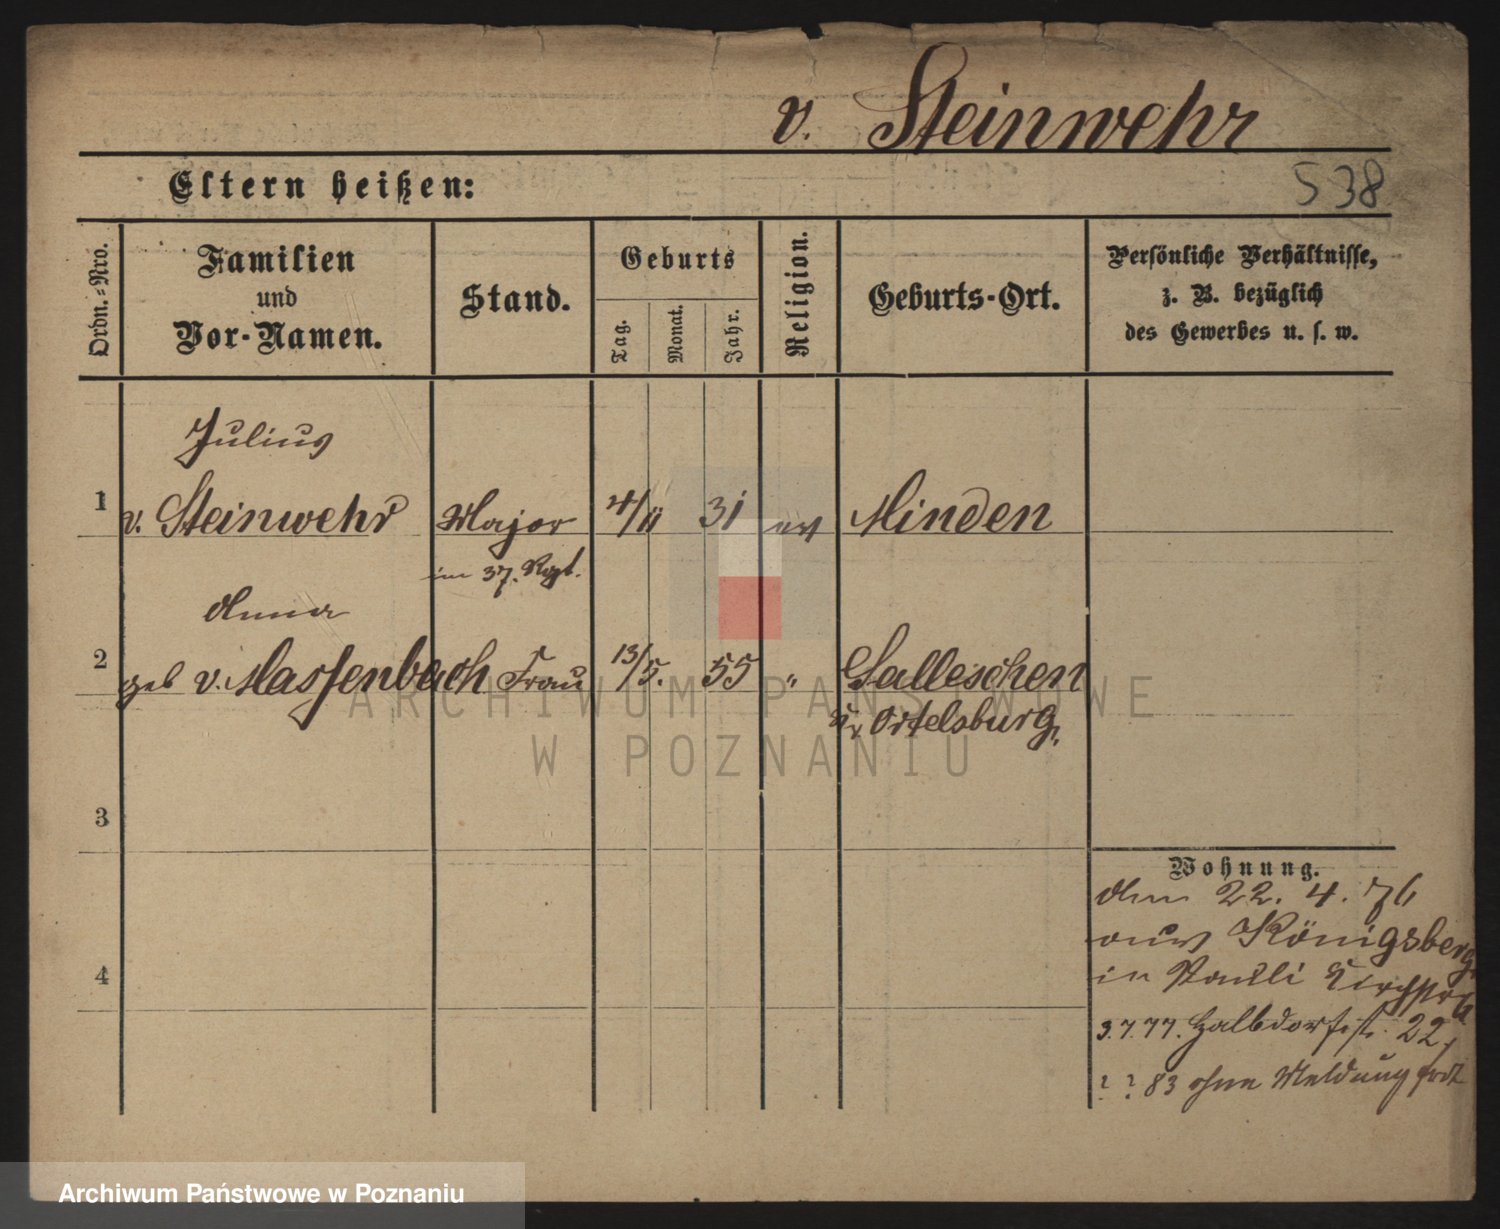 v. Steinwehr
Eltern heißen:
538
Ordn.-Nro.
Familien
und
Vor-Namen.
Stand.
Geburts
Tag.
Monat.
Jahr.
Religion.
Geburts-Ort.
Persönliche Verhältnisse,
z. B. bezüglich
des Gewerbes u. s. w.
Julius
1 v. Steinwehr Major 4/11 31 ev Minden
im 37. Regt.
Anna
2 geb v. Massenbach Frau 13/5. 55 " Salleschen
Kr Ortelsburg
3
Wohnung.
den 22. 4. 76
aus Königsberg
4
in Pauli Kirchstr 6
3.7.77. Halbdorfstr. 22
? ? 83 ohne Meldung fort
ARCHIWUM PAŃSTWOWE
W POZNANIU
Archiwum Państwowe w Poznaniu